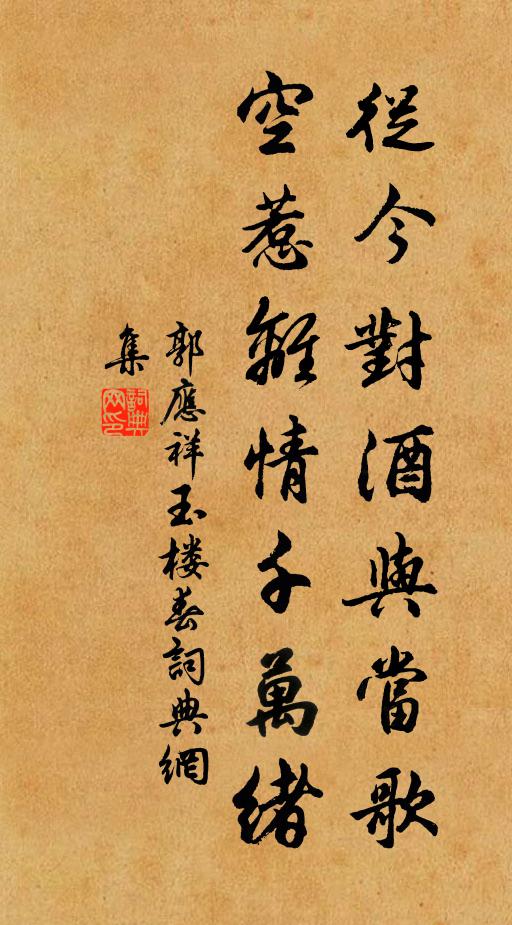 從今對酒與當歌
空惹離情千萬緒
郭應祥玉楼春詞典網
集
詞典
网印